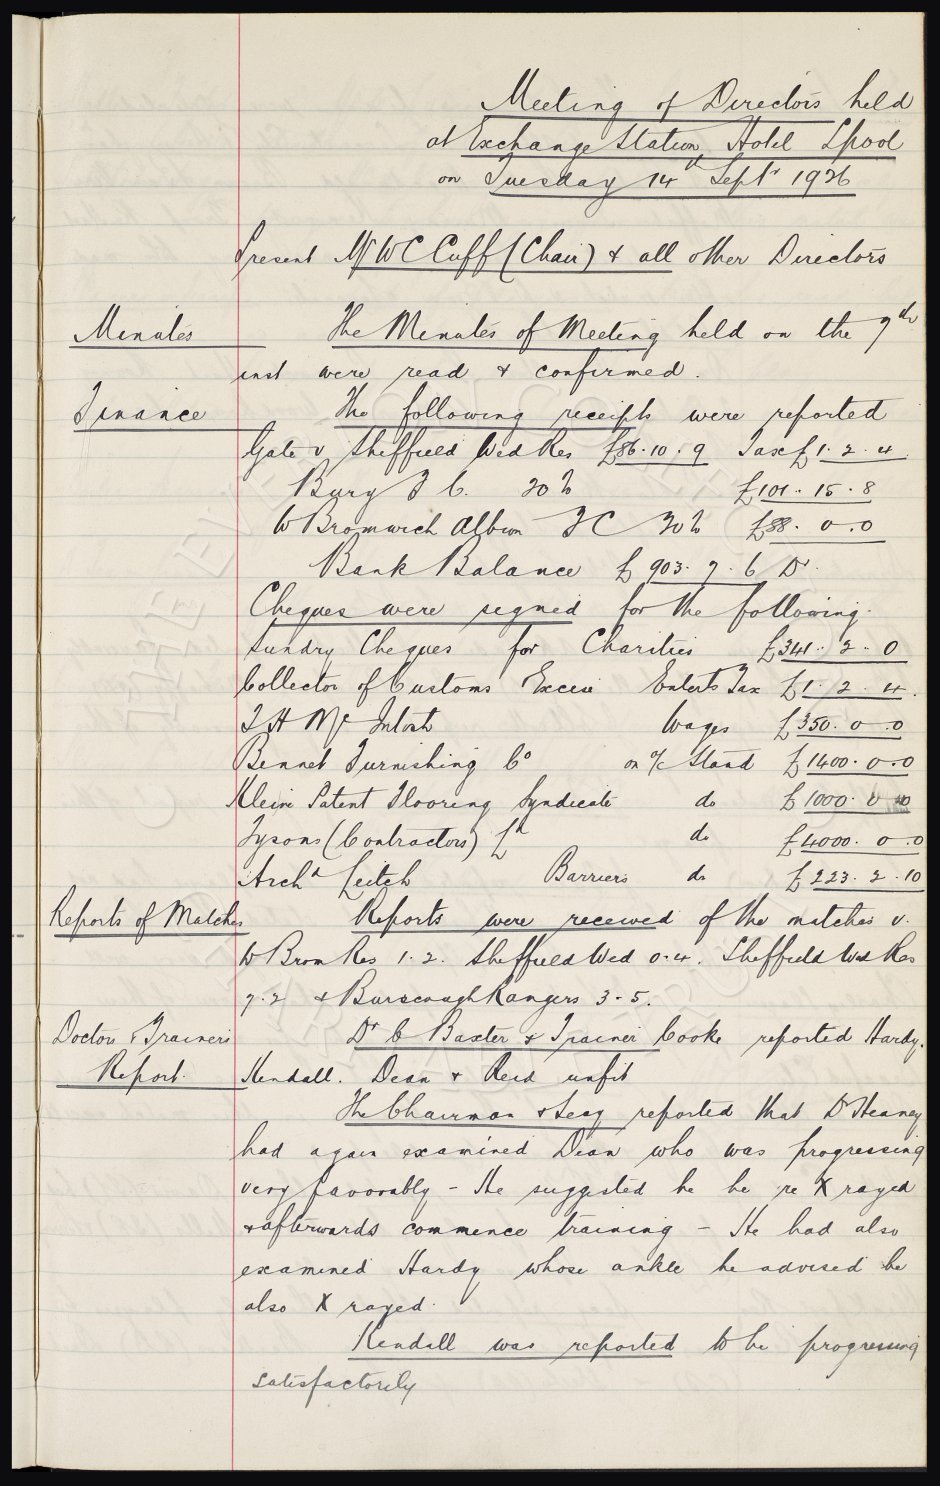 Meeting of Directors held
at Exchange Station Hotel Lpool
on Tuesday 14th Septr 1926
Present Mr W C Cuff (Chair) & all other Directors
Minutes The Minutes of Meeting held on the 7th
inst were read & confirmed.
Finance The following receipts were reported
Gate v Sheffield Wed Res £86.10.9 Tax £1.2.4.
Bury F C. 20% £101.15.8
W Bromwich Albion F C 20% £88.0.0
Bank Balance £903.7.6 Dr.
Cheques were signed for the following.
Sundry Cheques for Charities £341.2.0
Collector of Customs Excise Enterts Tax £1.2.4.
T H McIntosh Wages £350.0.0
Bennet Furnishing Co on a/c Stand £1400.0.0
Kleine Patent Flooring Syndicate do £1000.0.0
Tysons (Contractors) Ld do £4000.0.0
Archd Leitch Barriers do £223.2.10
Reports of Matches Reports were received of the matches v.
W Brom Res 1.2. Sheffield Wed 0.4. Sheffield Wed Res
7.2 & Burscough Rangers 3-5.
Doctor & Trainers Dr C Baxter & Trainer Cooke reported Hardy.
Report. Kendall. Dean & Reid unfit
The Chairman & Secy reported that Dr Heaney
had again examined Dean who was progressing
very favorably - He suggested he be re X rayed
& afterwards commence training - He had also
examined Hardy whose ankle he advised be
also X rayed.
Kendall was reported to be progressing
satisfactorily